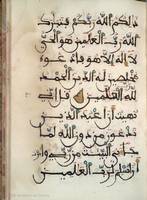 ذلكم الله ربكم فتبرك
الله رب العلمين هو الحي
لا اله الا هو فادعوه
مخلصين له الدين الحمد
لله رب العلمين قل اني
نهيت ان اعبد الذين
تدعون من دون الله لما
جاءني البينت من ربي وامرت
ان اسلم لرب العلمين